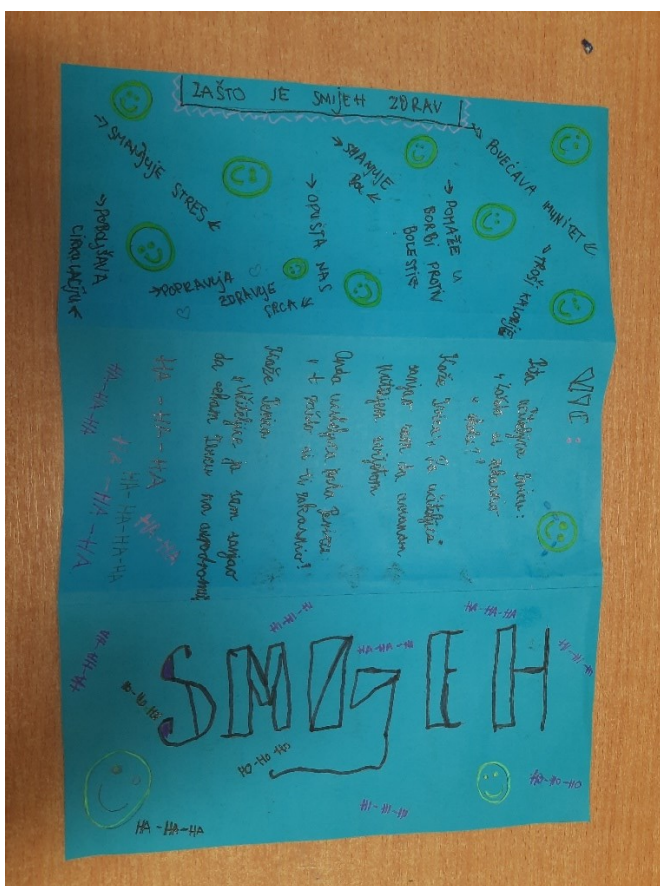 ZAŠTO JE SMIJEH ZDRAV
→ POVEĆAVA IMUNITET ←
→ TROŠI KALORIJE
→ POMAŽE U
BORBI PROTIV
BOLESTI ←
→ SMANJUJE
BOL ←
→ OPUŠTA NAS
→ POPRAVLJA
ZDRAVLJE
SRCA ←
→ SMANJUJE STRES ←
→ POBOLJŠAVA
CIRKULACIJU ←
VIC:
Pita učiteljica Ivicu:
Zašto si zakasnio
Kaže Ivica, Ja učiteljice
sanjao sam da
svijetom
Onda učiteljica pita Pericu:
A zašto si ti zakasnio?
Kaže Perica
Učiteljice ja sam sanjao
da čekam Ivicu na aerodromu
HA-HA-HA
HA-HA
HA-HA-HA-HA
HA-HA-HA
HA-HA-HA
SMIJEH
HA-HA-HA
HA-HA-HA
HA-HA-HA